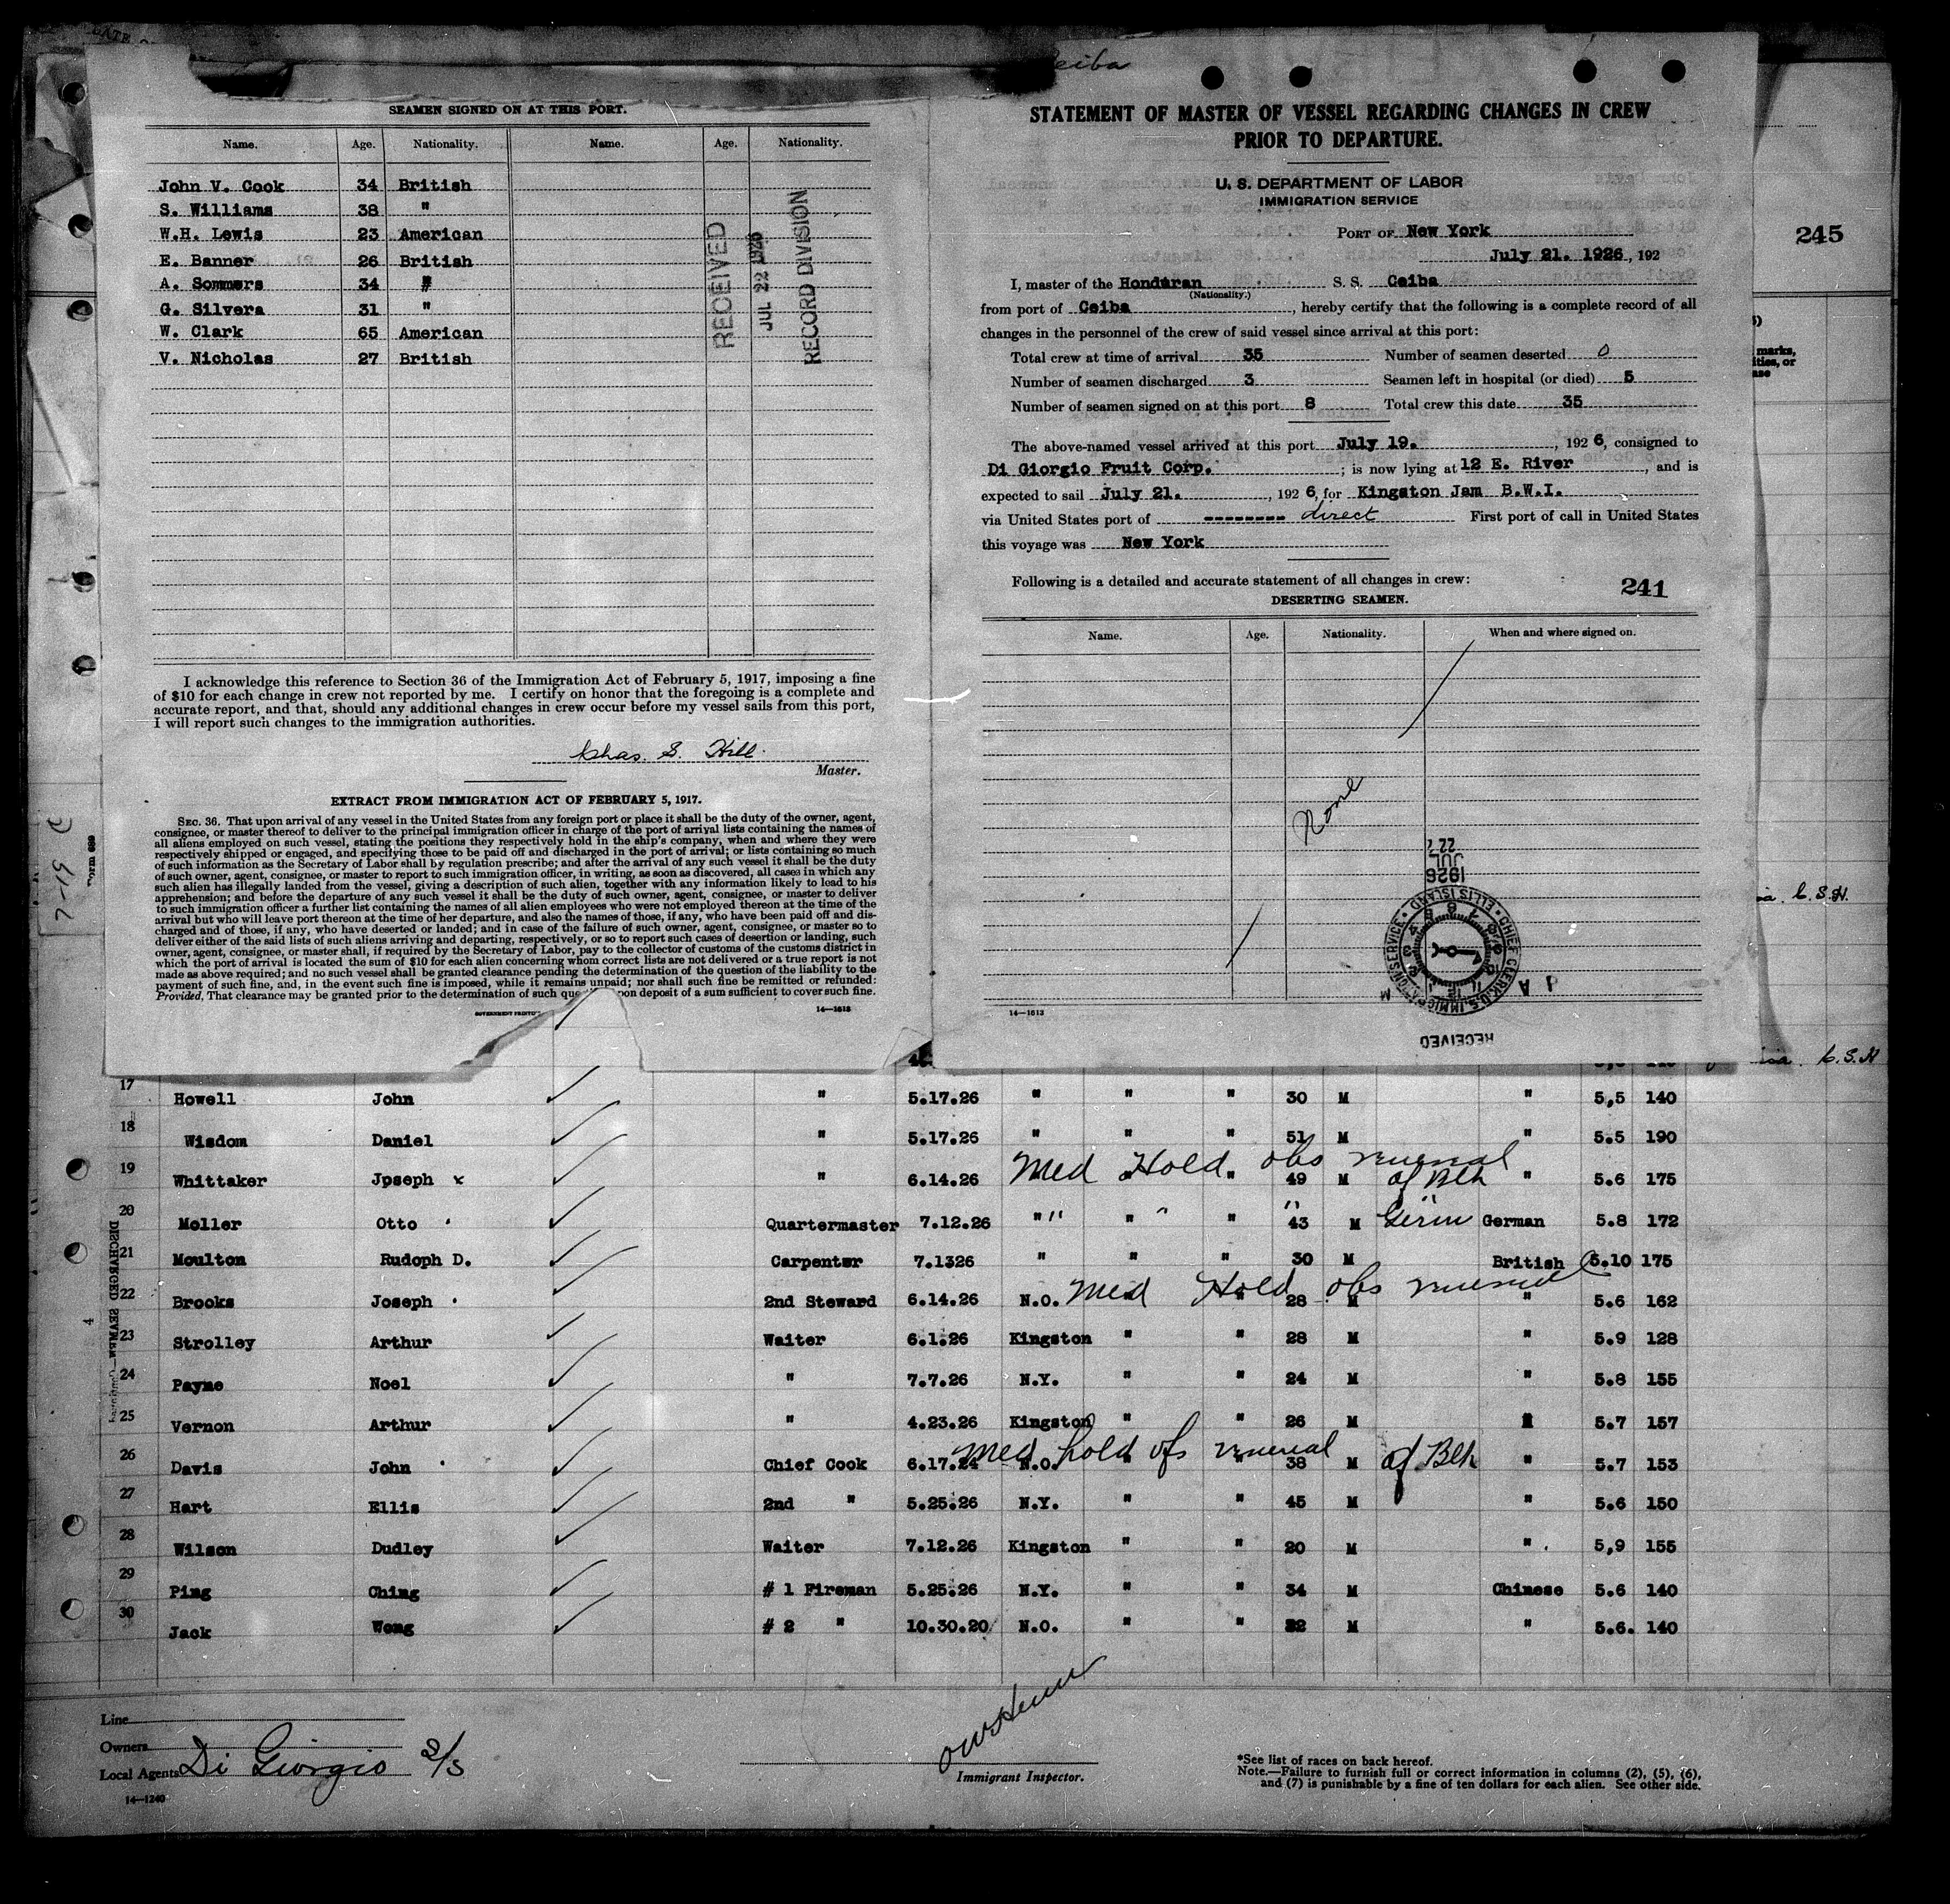 Ceiba
SEAMEN SIGNED ON AT THIS PORT.
Name. Age. Nationality. Name. Age. Nationality.
John V. Cook 34 British
S. Williams 38 "
W.H. Lewis 23 American
E. Banner 26 British
A. Sommers 34 "
G. Silvera 31 "
W. Clark 65 American
V. Nicholas 27 British
RECEIVED
JUL 22 1926
RECORD DIVISION
I acknowledge this reference to Section 36 of the Immigration Act of February 5, 1917, imposing a fine
of $10 for each change in crew not reported by me. I certify on honor that the foregoing is a complete and
accurate report, and that, should any additional changes in crew occur before my vessel sails from this port,
I will report such changes to the immigration authorities.
Chas. S. Hill
Master.
EXTRACT FROM IMMIGRATION ACT OF FEBRUARY 5, 1917.
SEC. 36. That upon arrival of any vessel in the United States from any foreign port or place it shall be the duty of the owner, agent,
consignee, or master thereof to deliver to the principal immigration officer in charge of the port of arrival lists containing the names of
all aliens employed on such vessel, stating the positions they respectively hold in the ship's company, when and where they were
respectively shipped or engaged, and specifying those to be paid off and discharged in the port of arrival; or lists containing so much
of such information as the Secretary of Labor shall by regulation prescribe; and after the arrival of any such vessel it shall be the duty
of such owner, agent, consignee, or master to report to such immigration officer, in writing, as soon as discovered, all cases in which any
such alien has illegally landed from the vessel, giving a description of such alien, together with any information likely to lead to his
apprehension; and before the departure of any such vessel it shall be the duty of such owner, agent, consignee, or master to deliver
to such immigration officer a further list containing the names of all alien employees who were not employed thereon at the time of the
arrival but who will leave port thereon at the time of her departure, and also the names of those, if any, who have been paid off and dis-
charged and of those, if any, who have deserted or landed; and in case of the failure of such owner, agent, consignee, or master so to
deliver either of the said lists of such aliens arriving and departing, respectively, or so to report such cases of desertion or landing, such
owner, agent, consignee, or master shall, if required by the Secretary of Labor, pay to the collector of customs of the customs district in
which the port of arrival is located the sum of $10 for each alien concerning whom correct lists are not delivered or a true report is not
made as above required; and no such vessel shall be granted clearance pending the determination of the question of the liability to the
payment of such fine, and, in the event such fine is imposed, while it remains unpaid; nor shall such fine be remitted or refunded:
Provided, That clearance may be granted prior to the determination of such upon deposit of a sum sufficient to cover such fine.
14—1613
STATEMENT OF MASTER OF VESSEL REGARDING CHANGES IN CREW
PRIOR TO DEPARTURE.
U. S. DEPARTMENT OF LABOR
IMMIGRATION SERVICE
PORT OF New York
July 21. 1926, 192
I, master of the Honduran S. S. Ceiba
(Nationality.)
from port of Ceiba, hereby certify that the following is a complete record of all
changes in the personnel of the crew of said vessel since arrival at this port:
Total crew at time of arrival 35 Number of seamen deserted 0
Number of seamen discharged 3 Seamen left in hospital (or died) 5
Number of seamen signed on at this port 8 Total crew this date 35
The above-named vessel arrived at this port July 19., 192 6, consigned to
Di Giorgio Fruit Corp. ; is now lying at 12 E. River, and is
expected to sail July 21., 192 6, for Kingston Jam B.W.I.
via United States port of -------- direct First port of call in United States
this voyage was New York
Following is a detailed and accurate statement of all changes in crew:
241
DESERTING SEAMEN.
Name. Age. Nationality. When and where signed on.
None
1926
JUL
22
CHIEF CLERK, U.S. IMMIGRATION SERVICE • ELLIS ISLAND •
RECEIVED
14—1613
245
marks,
C.S.H.
C.S.H
17 Howell John " 5.17.26 " " " 30 M " 5,5 140
18 Wisdom Daniel " 5.17.26 " " " 51 M " 5.5 190
Med Hold obs venereal
19 Whittaker Jpseph x " 6.14.26 " " 49 M af Blk " 5.6 175
20 Moller Otto Quartermaster 7.12.26 " " " 43 M Germ German 5.8 172
21 Moulton Rudoph D. Carpenter 7.1326 " " " 30 M British 5.10 175
Med Hold obs venereal
22 Brooks Joseph 2nd Steward 6.14.26 N.O. " " 28 M " 5.6 162
23 Strolley Arthur Waiter 6.1.26 Kingston " " 28 M " 5.9 128
24 Payne Noel " 7.7.26 N.Y. " " 24 M " 5.8 155
25 Vernon Arthur " 4.23.26 Kingston " " 26 M " 5.7 157
Med hold obs venereal af Blk
26 Davis John Chief Cook 6.17.24 N.O. " " 38 M " 5.7 153
27 Hart Ellis 2nd " 5.25.26 N.Y. " " 45 M " 5.6 150
28 Wilson Dudley Waiter 7.12.26 Kingston " " 20 M " 5,9 155
29 Ping Ching # 1 Fireman 5.25.26 N.Y. " " 34 M Chinese 5.6 140
30 Jack Wong # 2 " 10.30.20 N.O. " " 32 M " 5.6. 140
Line
Owners
Local Agents Di Giorgio S/S
14—1240
Immigrant Inspector.
*See list of races on back hereof.
Note.—Failure to furnish full or correct information in columns (2), (5), (6),
and (7) is punishable by a fine of ten dollars for each alien. See other side.